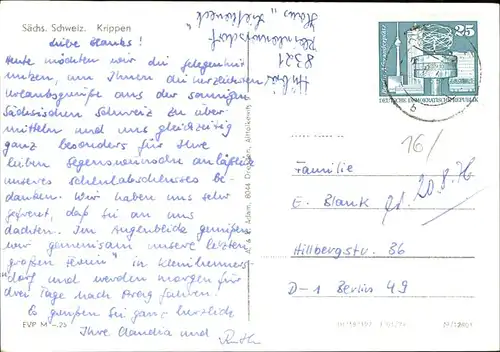 Sächs. Schweiz. Krippen
Liebe Blanks!
Heute möchten wir die Gelegenheit
nutzen, um Ihnen die herzlichsten
Urlaubsgrüße aus der sonnigen
Sächsischen Schweiz zu über
mitteln und uns gleichzeitig
ganz besonders für Ihre
lieben Segenswünsche anläßlich
unseres Schulabschlusses be-
danken. Wir haben uns sehr
gefreut, daß Sie an uns
dachten. Im Augenblick genießen
wir gemeinsam unsere letzten
"großen Ferien" in Kleinhenners-
dorf und werden morgen für
drei Tage nach Prag fahren.
Es grüßen Sie ganz herzlich
Ihre Claudia und Ruth
EVP M -,25
8321
Kleinhennersdorf
Haus
Adam, 8044 Dresden, Altrolkewitz
25
DEUTSCHE DEMOKRATISCHE REPUBLIK
16/
Familie
E. Blank
20.8.76
Hillbergstr. 86
D-1 Berlin 49